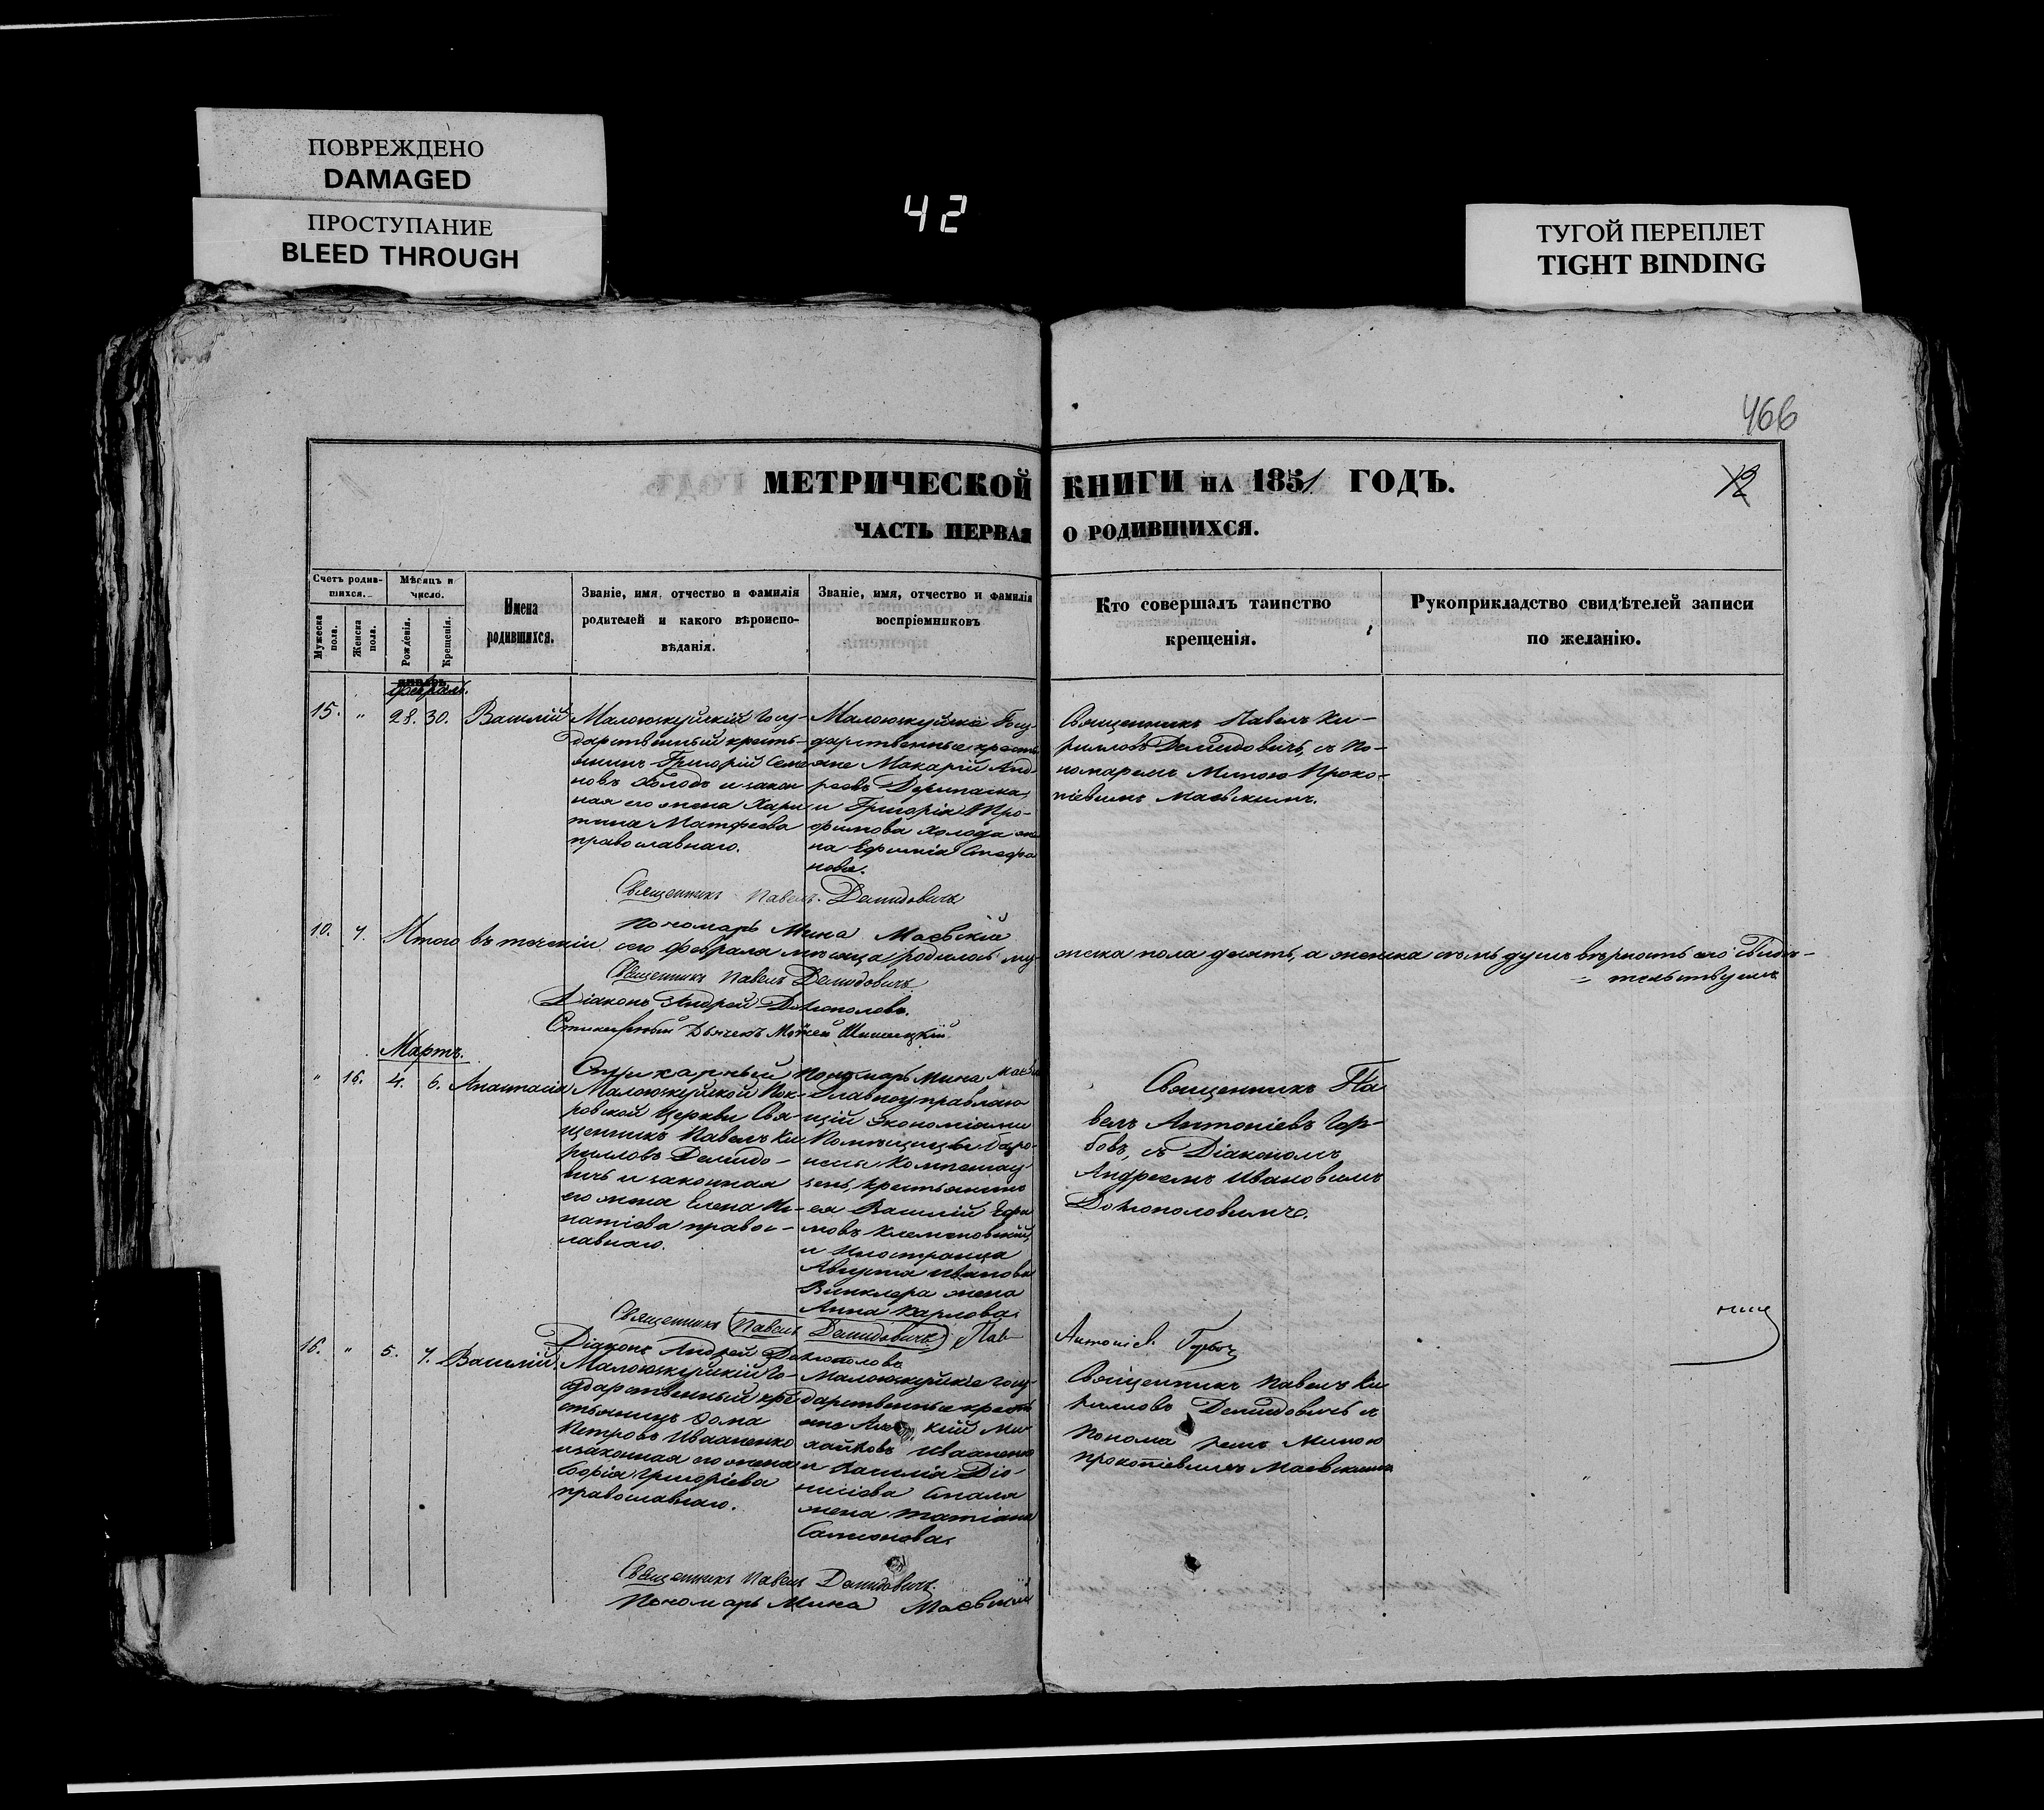 ПОВРЕЖДЕНО
DAMAGED
ПРОСТУПАНИЕ
BLEED THROUGH
42
ТУГОЙ ПЕРЕПЛЕТ
TIGHT BINDING
466
МЕТРИЧЕСКОЙ КНИГИ НА 1851 ГОДЪ.
12
ЧАСТЬ ПЕРВАЯ О РОДИВШИХСЯ.
Счетъ родив-
шихся.
Мужеска пола.
Женска пола.
Мѣсяцъ и
число.
Рожденія.
Крещенія.
Имена
родившихся.
Званіе, имя, отчество и фамилія
родителей и какого вѣроиспо-
вѣданія.
Званіе, имя, отчество и фамилія
воспріемниковъ
Кто совершалъ таинство
крещенія.
Рукоприкладство свидѣтелей записи
по желанію.
февраль.
15. " 28. 30. Василій
Государственный кресть-
янинъ Григорій Семе-
новъ Холодъ и закон
ная его жена Хари
тина Матфеева
православнаго.
государственные крестья
яне Макарій Анд
реевъ Дерипаска,
и Григорія Тро-
фимова Холода же
на Евфимія Стефа
нова.
Священникъ Павелъ Ки-
рилловъ Демидовичъ, съ по-
номаремъ Миною Проко-
піевымъ Маевскимъ.
Священникъ Павелъ Демидовичъ
Пономарь Мина Маевскій
10. 7. Итого въ теченіи сего февраля мѣсяца родилось му
жеска пола десять, а женска семь душъ вѣрность сего свидѣ-
= тельствуемъ
Священникъ Павелъ Демидовичъ
Діаконъ Андрей
Стихарный Дьячекъ
Мартъ.
Стихарный Пономарь Мина
" 16. 4. 6. Анастасія
Пок-
ровской Церкви Свя-
щенникъ Павелъ Ки
рилловъ Демидо-
вичъ и законная
его жена Елена Иг-
натіева правос-
лавнаго.
Главноуправляю
щій Экономіями
Помѣщицы Баро-
нессы
зенъ, крестьянинъ
ея Василій Ефи
мовъ
и Иностранца
Августа Иванова
Винклера жена
Анна Карлова.
Священникъ Па
велъ Антоніевъ Гор-
бовъ, съ Діакономъ
Андреемъ Ивановымъ
Священникъ Павелъ Демидовичъ
Антоніев.
Діаконъ Андрей
16. " 5. 7. Василій
ударственный кре
стьянинъ Ѳома
Петровъ Иваненко
и законная его жена
Софія Григоріева
православнаго.
дарственные кресть
хайловъ Иваненко
и Василія Діо-
нисіова
жена Татіана
Самсонова.
Священникъ Павелъ Ки
рилловъ Демидовичъ съ
Пономаремъ Миною
Прокопіевымъ Маевскимъ
Священникъ Павелъ Демидовичъ.
Пономарь Мина Маевскій